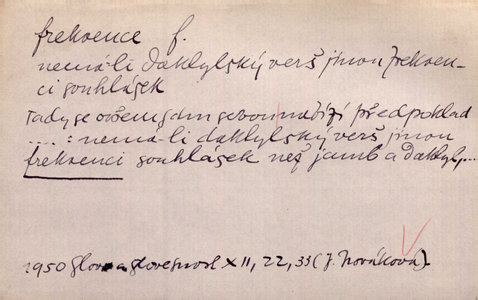 frekvence f.
nemá-li daktylský verš jinou frekven-
ci souhlásek
Tady se ovšem předpoklad
.... : nemá-li daktylský verš jinou
frekvenci souhlásek než jamb a daktyl, ...
1950 Slovo a slovesnost XII, 22, 33 (J. Nováková)